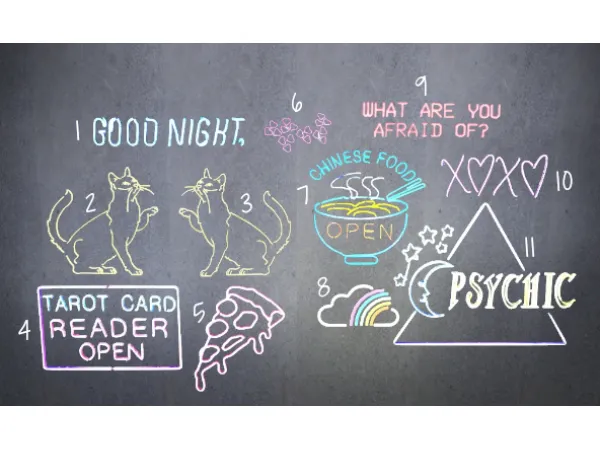 1 GOOD NIGHT,
6
9
WHAT ARE YOU
AFRAID OF?
2
3
7
CHINESE FOOD
OPEN
XOXO 10
4
TAROT CARD
READER
OPEN
5
8
11
PSYCHIC